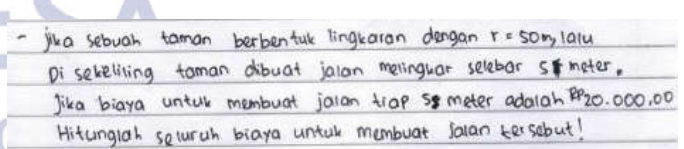 - Jika sebuah taman berbentuk lingkaran dengan r = 50m, lalu
Di sekeliling taman dibuat jalan melingkar selebar 5 meter.
Jika biaya untuk membuat jalan tiap 5 meter adalah Rp20.000,00
Hitunglah seluruh biaya untuk membuat jalan tersebut!